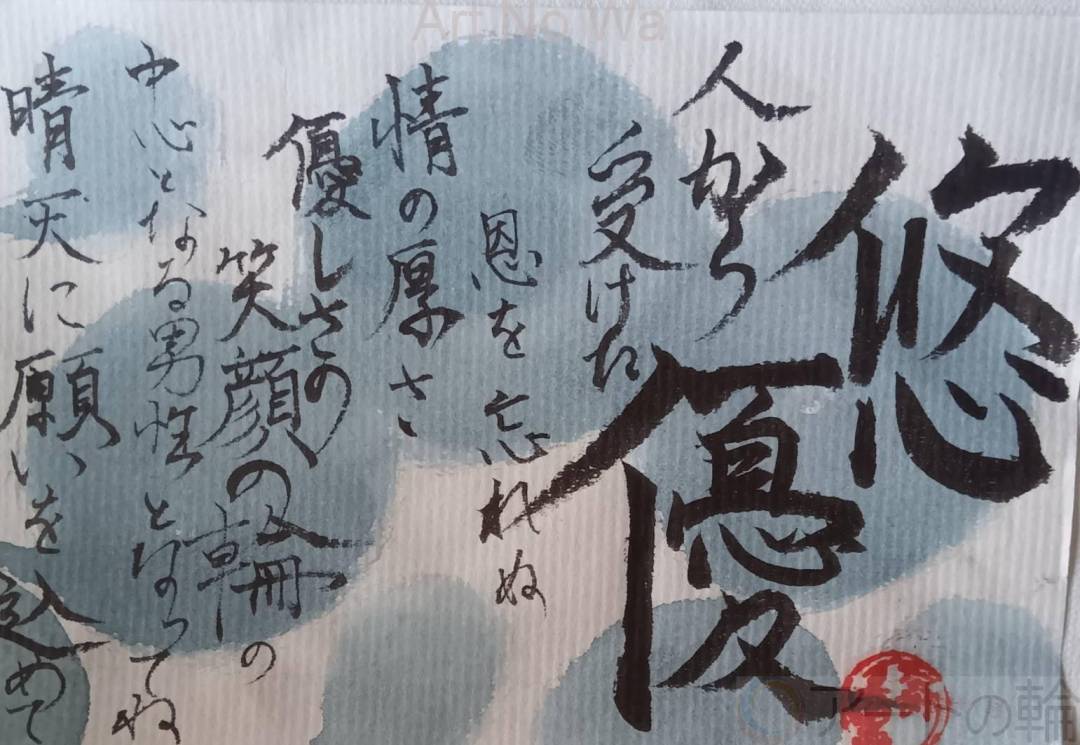 Art No Wa
悠
優
人から
受けた
恩を忘れぬ
情の厚さ
優しさの
笑顔の輪の
中心となる男性となってね
晴天に願いを込めて
アートの輪